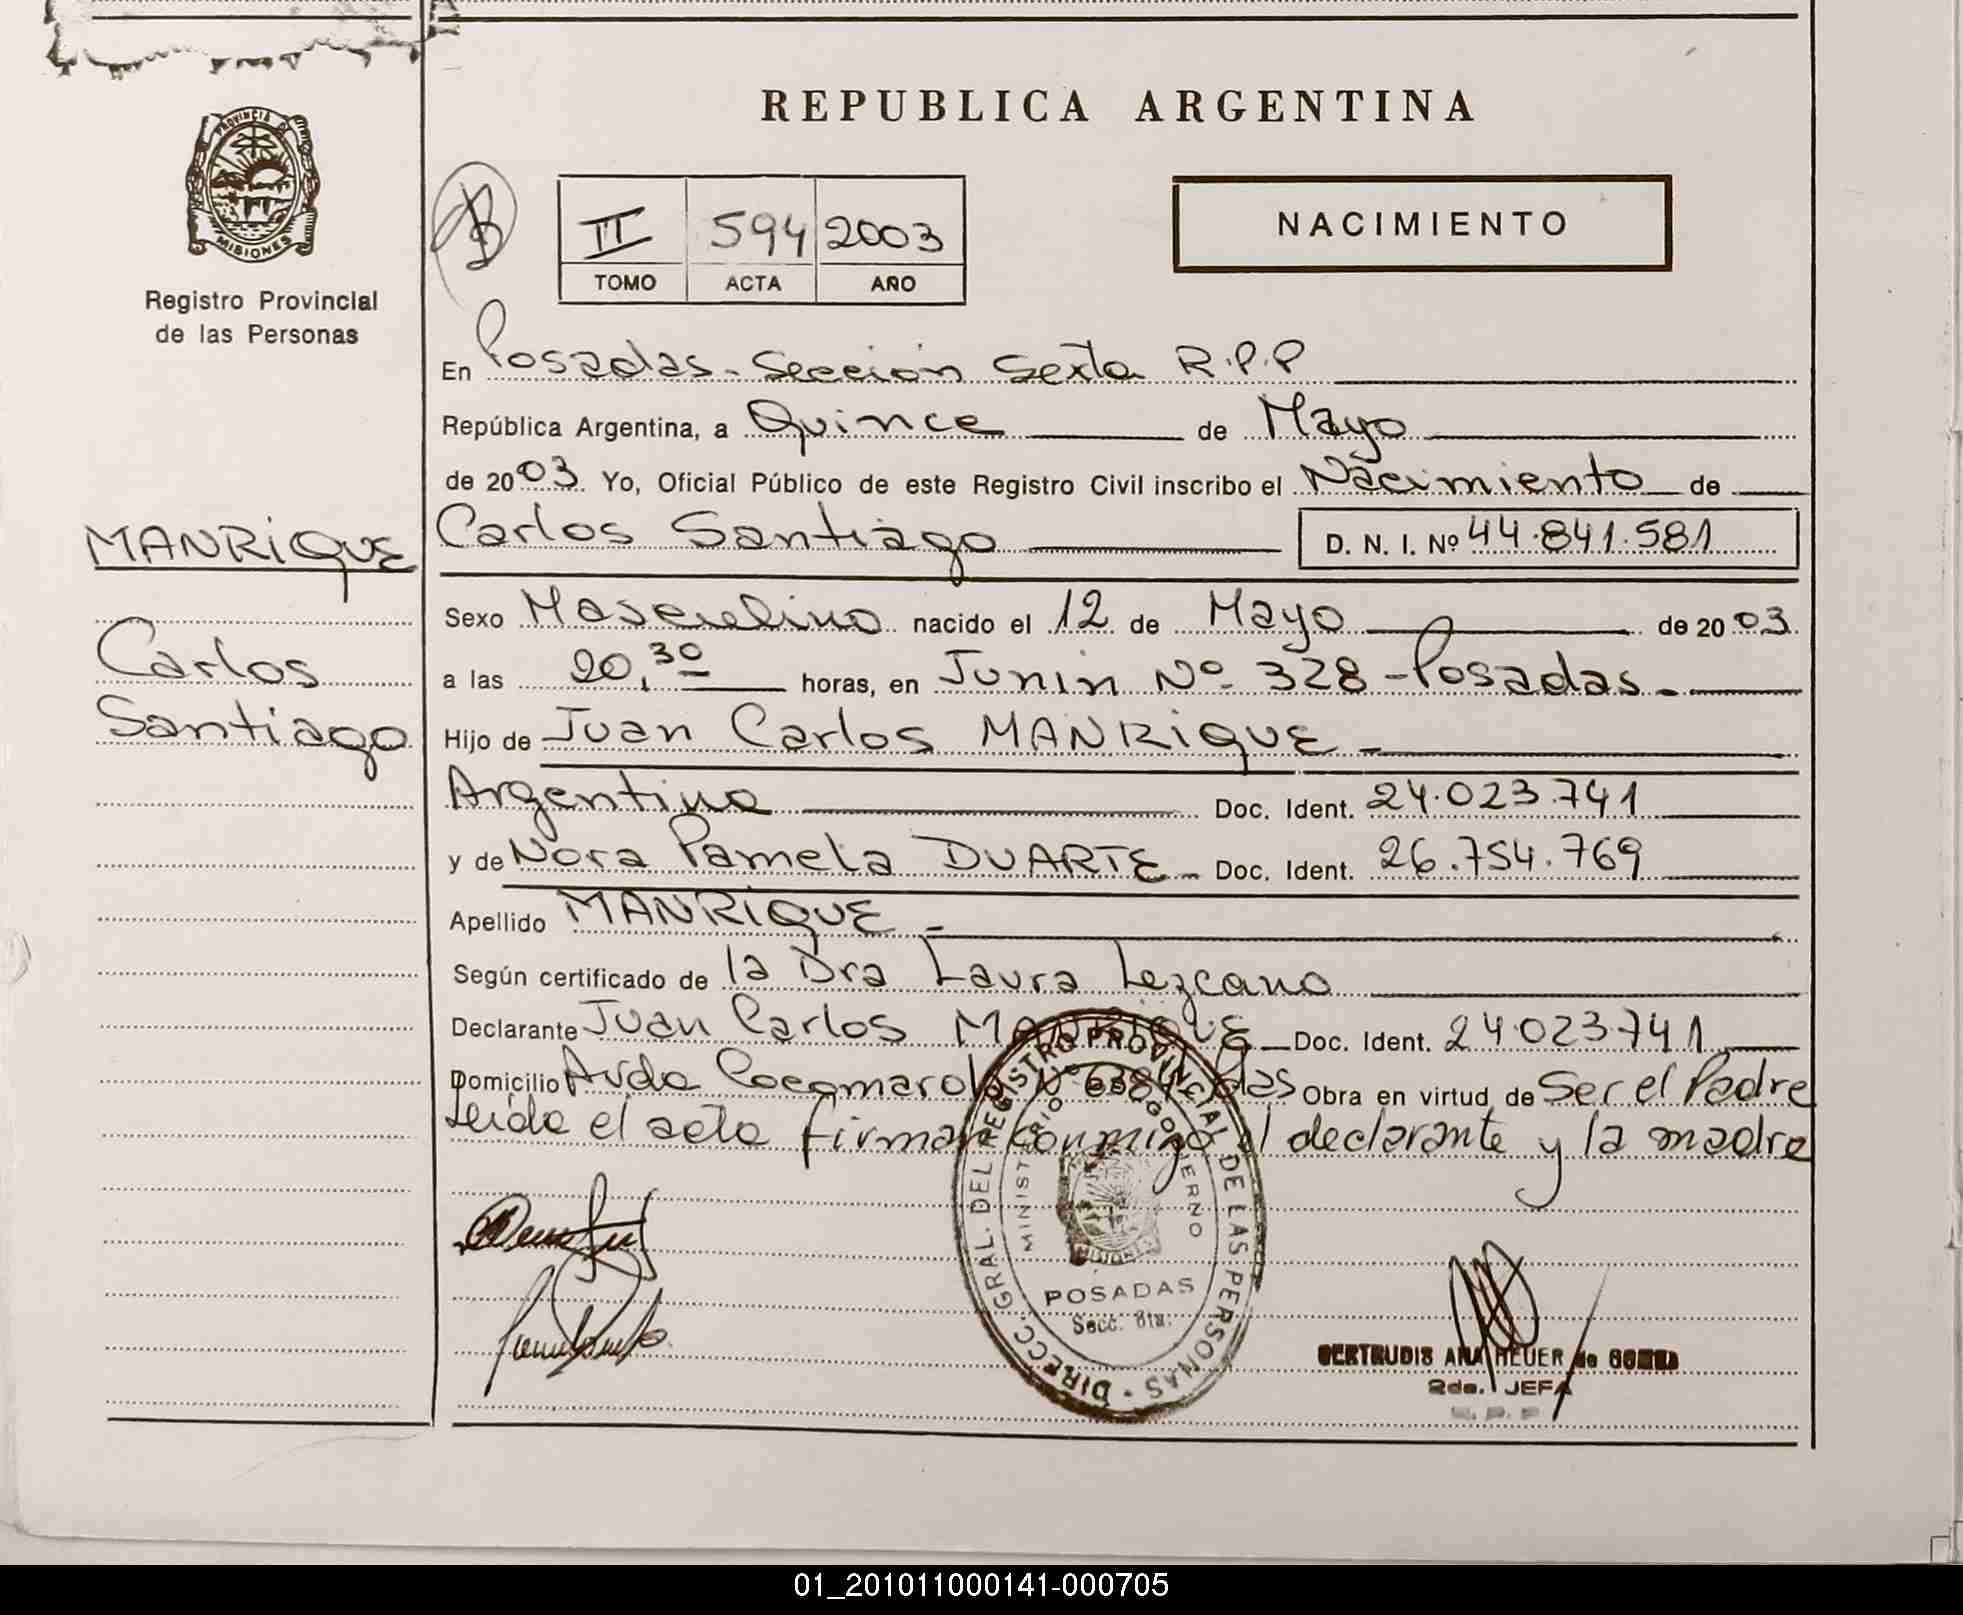 REPUBLICA ARGENTINA
PROVINCIA DE
MISIONES
Registro Provincial
de las Personas
II 594 2003
TOMO ACTA AÑO
NACIMIENTO
En Posadas - Sección Sexta R.P.P
República Argentina, a Quince de Mayo
de 2003 Yo, Oficial Público de este Registro Civil inscribo el Nacimiento de
MANRIQUE
Carlos
Santiago
Carlos Santiago D. N. I. Nº 44.841.581
Sexo Masculino nacido el 12 de Mayo de 2003
a las 20,30 horas, en Junin Nº 328 - Posadas -
Hijo de Juan Carlos MANRIQUE -
Argentino Doc. Ident. 24.023.741
y de Nora Pamela DUARTE - Doc. Ident. 26.754.769
Apellido MANRIQUE -
Según certificado de la Dra Laura Lezcano
Declarante Juan Carlos MANRIQUE Doc. Ident. 24.023.741
Domicilio Avda Cocomarola Nº Pdas Obra en virtud de Ser el Padre
Leida el acta firman conmigo el declarante y la madre
DIRECC. GRAL. DEL REGISTRO PROVINCIAL DE LAS PERSONAS
MINISTERIO DE GOBIERNO
MISIONES
POSADAS
Secc. 6ta.
GERTRUDIS ANA HEUER de
2da. JEFA
R. P. P.
01_201011000141-000705